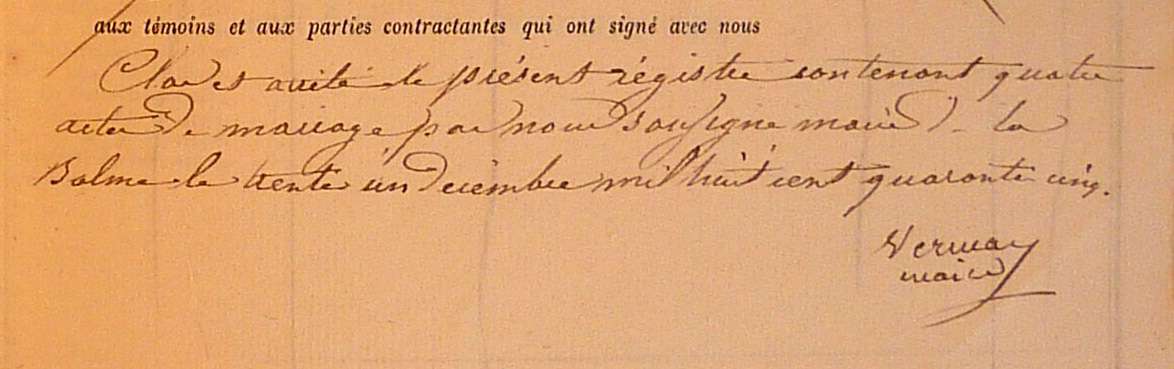 aux témoins et aux parties contractantes qui ont signé avec nous
Clos et arrêté le présent régistre contenant quatre
actes de mariage par nous soussigné maire de la
Balme le trente un decembre mil huit cent quarante cinq.
Vermay
maire